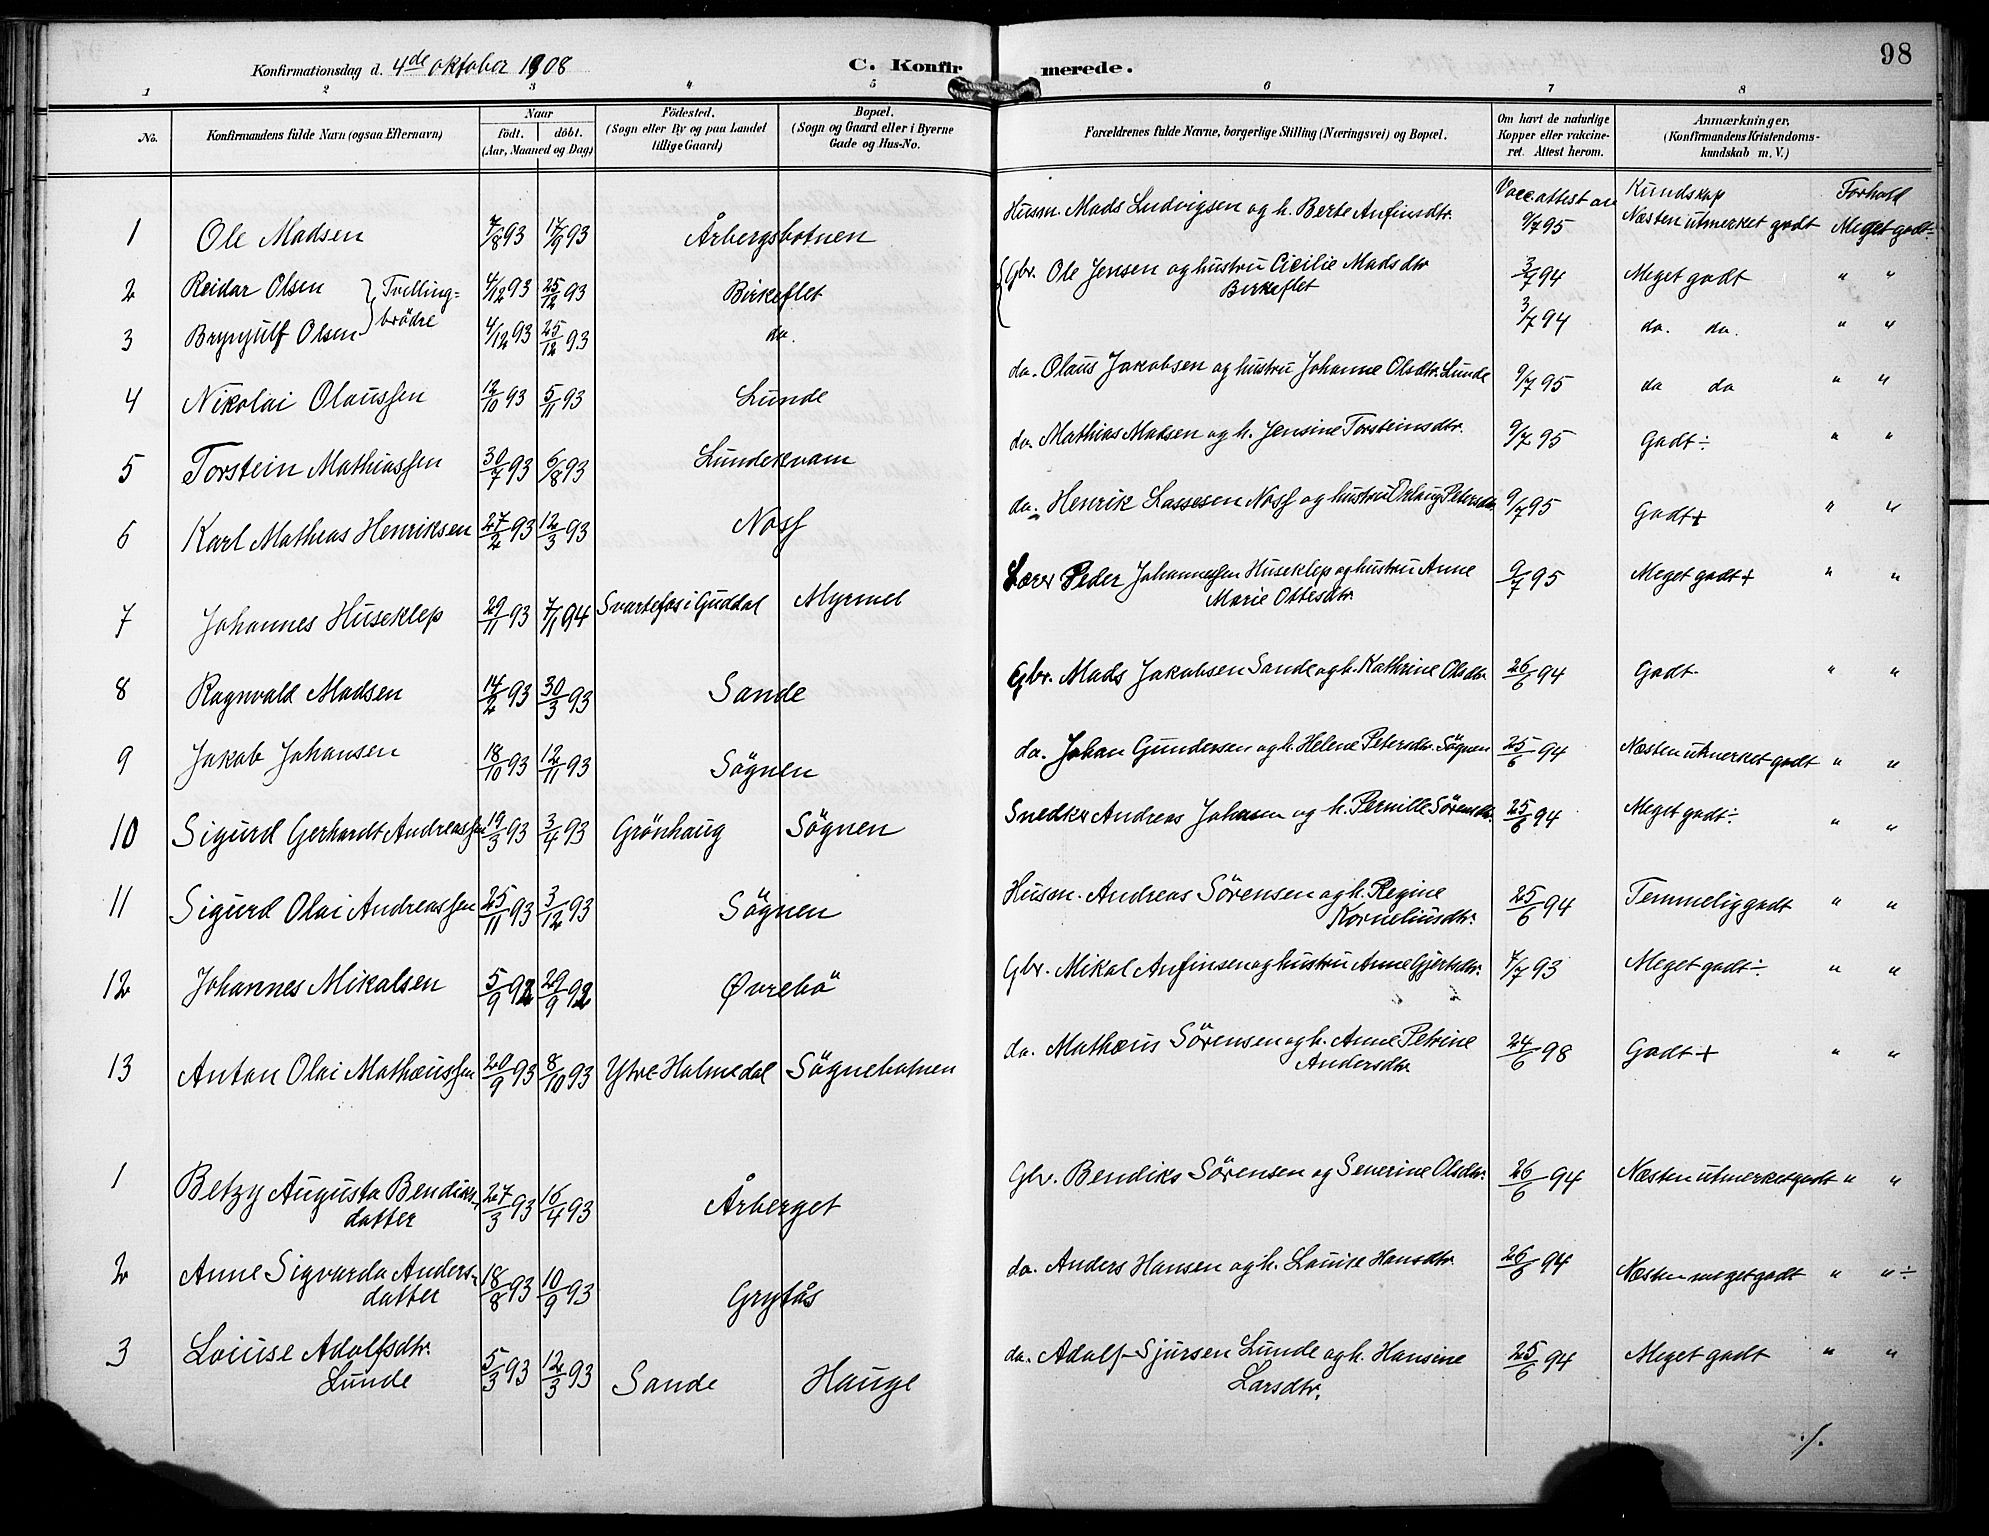 98
Konfirmationsdag d. 4de oktober 1908 C. Konfirmerede.
1 2 3 4 5 6 7 8
No. Konfirmandens fulde Navn (ogsaa Efternavn) Naar födt. döbt. (Aar, Maaned og Dag) Födested. (Sogn eller By og paa Landet tillige Gaard) Bopæl. (Sogn og Gaard eller i Byerne Gade og Hus-No. Forældrenes fulde Navne, borgerlige Stilling (Næringsvei) og Bopæl. Om havt de naturlige Kopper eller vakcineret. Attest herom. Anmærkninger, (Konfirmandens Kristendomskundskab m. V.)
Vacc.attest av Kundskap Forhold
1 Ole Madsen 7/8 93 17/9 93 Årbergsbotnen Husm. Mads Ludvigsen og h. Berte Anfinsdtr. 9/7 95 Næsten utmerket godt Meget godt÷
2 Reidar Olsen } Tvillingbrödre 4/12 93 25/12 93 Birkeflet { Gbr. Ole Jensen og hustru Cicilie Madsdtr Birkeflet 3/7 94 Meget godt " "
3 Brynjulf Olsen 4/12 93 25/12 93 do. 3/7 94 do. do. " "
4 Nikolai Olaussen 12/10 93 5/11 93 Lunde do. Olaus Jakobsen og hustru Johanne Olsdtr. Lunde 9/7 95 do do " "
5 Torstein Mathiassen 30/7 93 6/8 93 Lundekvam do. Mathias Madsen og h. Jensine Torsteinsdtr. 9/7 95 Godt÷ " "
6 Karl Mathias Henriksen 27/2 93 12/3 93 Noss do. Henrik Lassesen Noss og hustru Petersdtr 9/7 95 Godt+ " "
7 Johannes Huseklep 29/11 93 7/1 94 Svartefos i Guddal Myrmel Lærer Peder Johannessen Huseklep og hustru Anne Marie Ottesdtr. 9/7 95 Meget godt+ " "
8 Ragnvald Madsen 14/2 93 30/3 93 Sande Gbr. Mads Jakobsen Sande og h. Kathrine Olsdtr. 26/6 94 Godt " "
9 Jakob Johansen 18/10 93 12/11 93 Sögnen do. Johan Gundersen og h. Helene Petersdtr. Sögnen 25/6 94 Næsten utmerket godt " "
10 Sigurd Gerhardt Andreassen 19/3 93 3/4 93 Grönhaug Sögnen Snedker Andreas Johansen og h. Pernille Sörensdtr. 25/6 94 Meget godt÷ " "
11 Sigurd Olai Andreassen 25/11 93 3/12 93 Sögnen Husm. Andreas Sörensen og h. Regine Korneliusdtr. 25/6 94 Temmelig godt " "
12 Johannes Mikalsen 5/9 92 29/9 92 Øvrebö Gbr. Mikal Anfinsen og hustru Anne Gjertsdtr. 4/7 93 Meget godt÷ " "
13 Anton Olai Mathæussen 20/9 93 8/10 93 Ytre Holmedal Sögnebotnen do. Mathæus Sörensen og h. Anne Petrine Andersdtr. 24/6 98 Godt+ " "
1 Betzy Augusta Bendiksdatter 27/3 93 16/4 93 Årberget Gbr. Bendiks Sörensen og Severine Olsdtr. 26/6 94 Næsten utmerket godt " "
2 Anne Sigvarda Andersdatter 18/8 93 10/9 93 Grytås do. Anders Hansen og h. Louise Hansdtr. 26/6 94 Næsten meget godt " "÷
3 Louise Adolfsdtr. Lunde 5/3 93 12/3 93 Sande Hauge do. Adolf Sjursen Lunde og h. Hansine Larsdtr. 25/6 94 Meget godt " "
./.